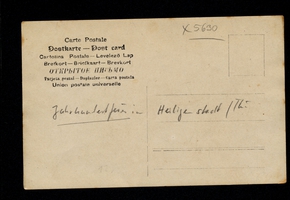 X 5690
Carte Postale
Postkarte — Post card
Cartolina Postale — Levelező Lap
Brefkort — Briefkaart — Brevkort
ОТКРЫТОЕ ПИСЬМО
Tarjeta postal — Dopisnice — Karta pocztowa
Union postale universelle
in Heiligenstadt /Th.